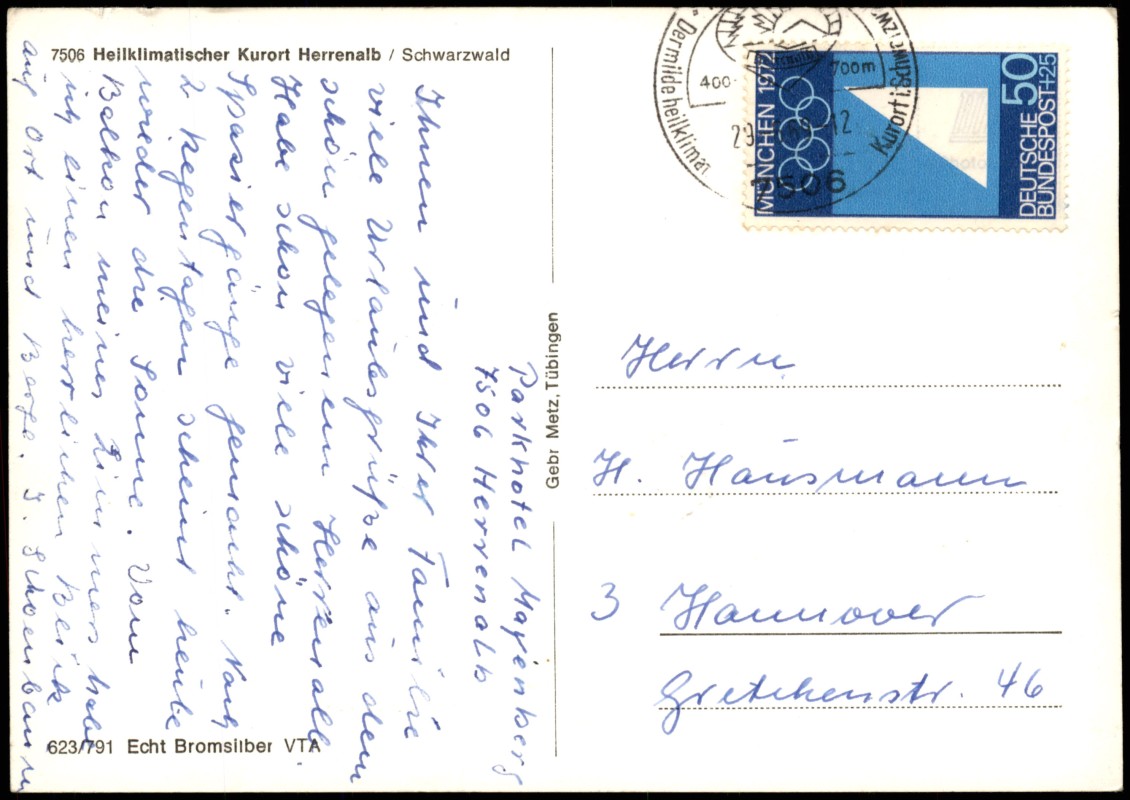 7506 Heilklimatischer Kurort Herrenalb / Schwarzwald
Parkhotel Mayenberg
7506 Herrenalb
Ihnen und Ihrer Familie
viele Urlaubsgrüße aus dem
schön gelegenen Herrenalb.
Habe schon viele schöne
Spaziergänge gemacht. Nach
2 Regentagen scheint heute
wieder die Sonne. Vom
Balkon meines Zimmers habe
ich einen herrlichen Blick
auf Ort und Berge. J. Schoenbaum
623/791 Echt Bromsilber VTA
Gebr Metz, Tübingen
Der milde heilklimat
Kurort i. Schw
400
700m
29
12
7506
MÜNCHEN 1972
DEUTSCHE
BUNDESPOST
50
+25
Herrn
H. Hausmann
3 Hannover
Gretchenstr. 46